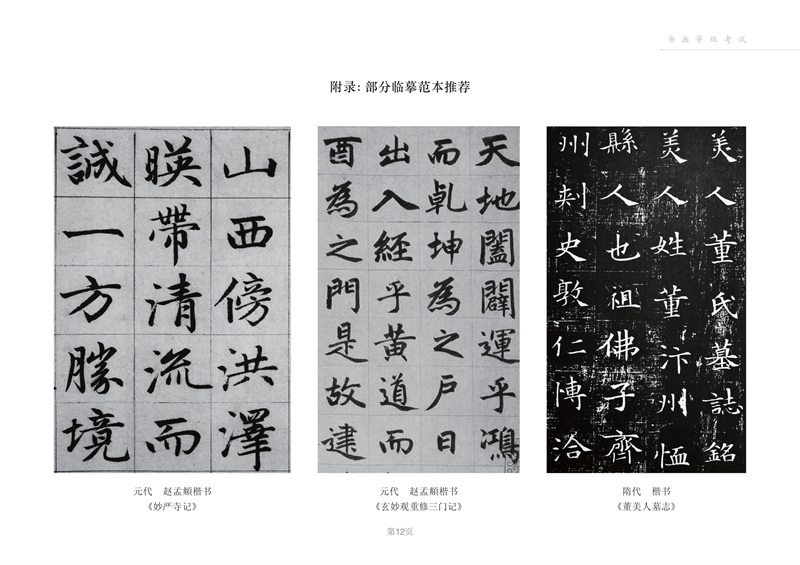 书画等级考试
附录：部分临摹范本推荐
山西傍洪澤
暎帶清流而
誠一方勝境
元代 赵孟頫楷书
《妙严寺记》
天地闔闢運乎鴻
而乹坤為之戶日
出入經乎黄道而
酉為之門是故建
元代 赵孟頫楷书
《玄妙观重修三门记》
美人董氏墓誌銘
美人姓董汴州恤
縣人也祖佛子齊
州刾史敦仁博洽
隋代 楷书
《董美人墓志》
第12页